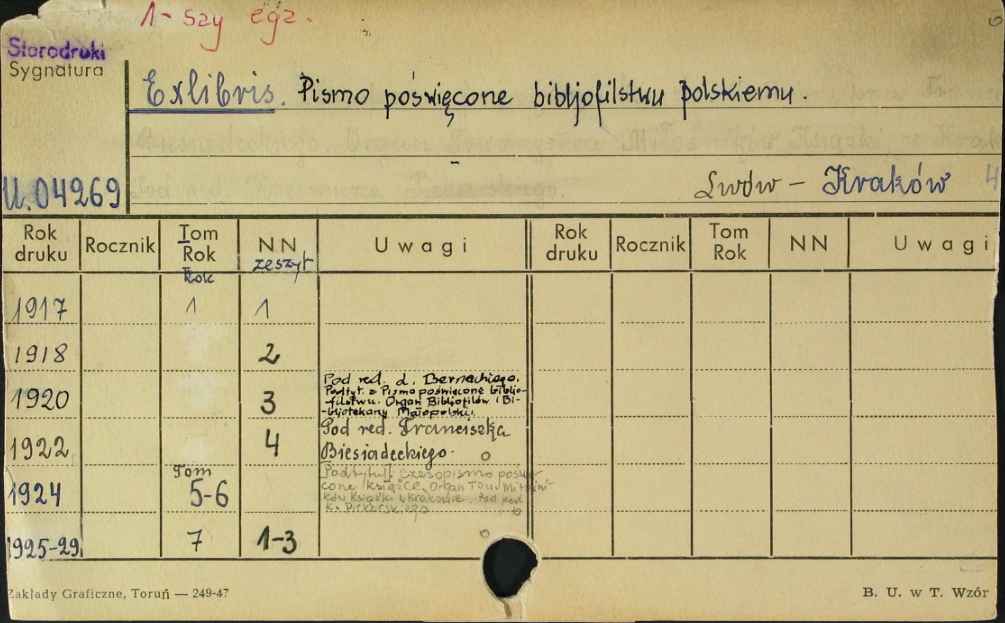 1-szy egz.
Starodruki
Sygnatura
Exlibris. Pismo poświęcone bibljofilstwu polskiemu.
U.04269
Lwów - Kraków 4
Rok druku Rocznik Tom Rok NN Uwagi Rok druku Rocznik Tom Rok NN Uwagi
Rok zeszyt
1917 1 1
1918 2
1920 3 Pod red. L. Bernackiego.
Podtyt.: Pismo poświęcone biblio-
-filstwu. Organ Bibljofilów i Bi-
-bljotekarzy Małopolski.
1922 4 Pod red. Franciszka
Biesiadeckiego.
Tom
1924 5-6 [Podtytuł] Czasopismo poświę-
cone książce. Organ Tow. Miłośni-
ków Książki w Krakowie. Pod red.
K. Piekarskiego
1925-29 7 1-3
Zakłady Graficzne, Toruń — 249-47
B. U. w T. Wzór